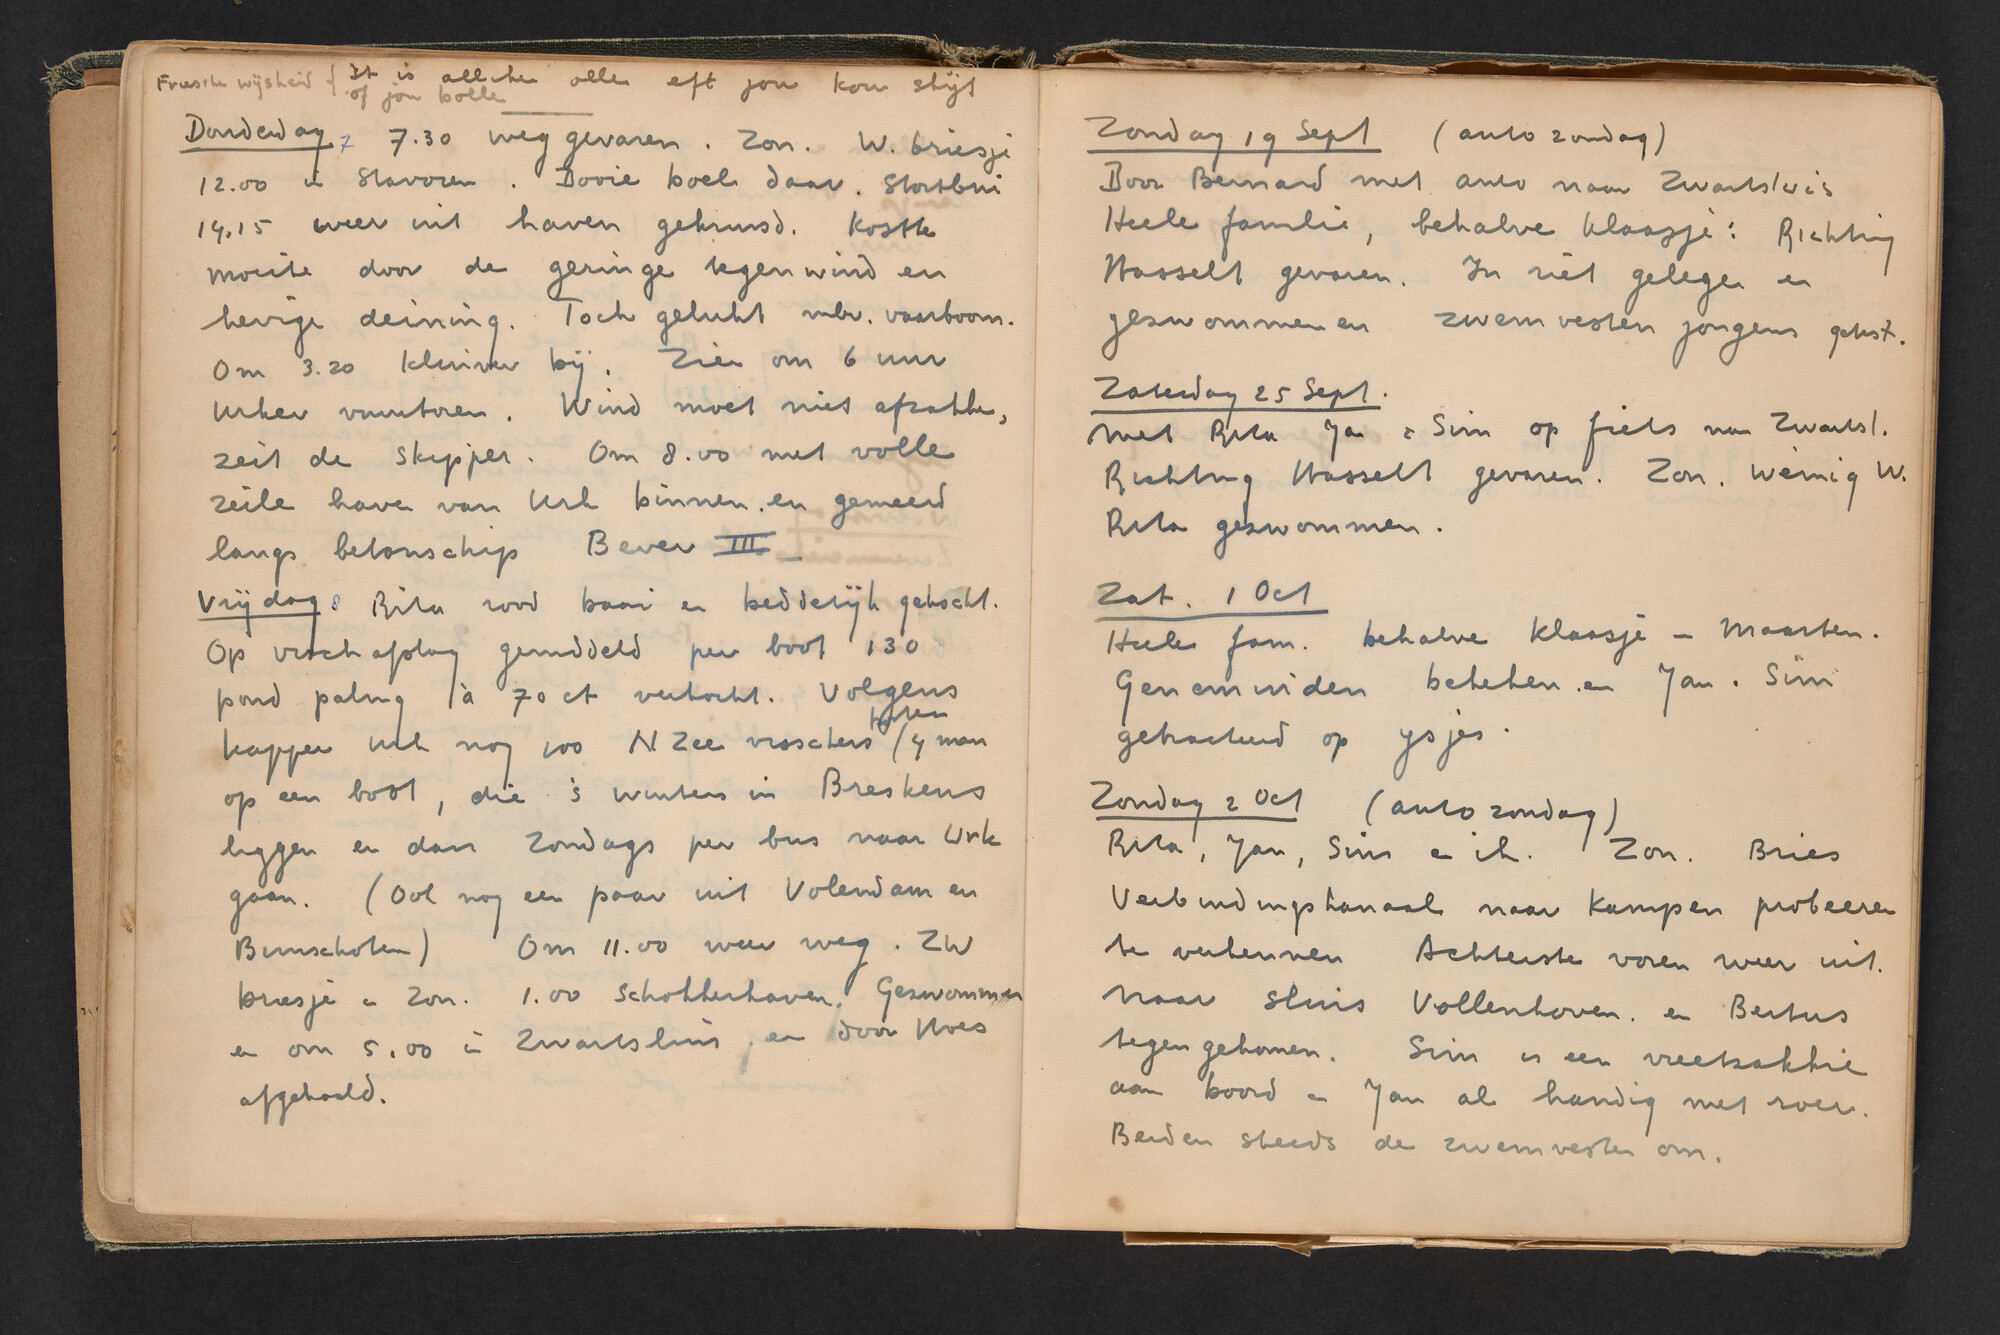 Friesche wijsheid { It is allike olle eft jou kou skijt
of jou bolle
Donderdag 7 7.30 weg gevaren. Zon. W. briesje
12.00 in Stavoren. Dooie boel daar. Stortbui
14.15 weer uit haven gekruisd. Kostte
moeite door de geringe tegenwind en
hevige deining. Toch gelukt mbv. vaarboom.
Om 3.20 kluiver bij. Zien om 6 uur
Urker vuurtoren. Wind moet niet afzakke,
zeit de skipper. Om 8.00 met volle
zeile have van Urk binnen en gemeerd
langs betonschip Bever III
Vrijdag 8 Rita rood baai en beddetijk gekocht.
Op vischafslag gemiddeld per boot 130
pond paling à 70 ct verkocht. Volgens
kapper Urk nog 100 N Zee visschers (4 man
op een boot, die 's winters in Breskens
liggen en dan Zondags per bus naar Urk
gaan. (Ook nog een paar uit Volendam en
Bunschoten) Om 11.00 weer weg. ZW
briesje en zon. 1.00 Schokkerhaven. Gezwommen
en om 5.00 in Zwartsluis en door Hoes
afgehaald.
Zondag 19 Sept (auto zondag)
Door Bernard met auto naar Zwartsluis
Heele familie, behalve Klaasje: Richting
Hasselt gevaren. In riet gelegen en
gezwommen en zwemvesten jongens getest.
Zaterdag 25 Sept.
Met Rita Jan & Sim op fiets naar Zwartsl.
Richting Hasselt gevaren. Zon. Weinig W.
Rita gezwommen.
Zat. 1 Oct
Heele fam. behalve Klaasje en Maarten.
Genemuiden bekeken en Jan & Sim
getracteerd op ysjes.
Zondag 2 Oct (auto zondag)
Rita, Jan, Sim en ik. Zon. Bries
Verbindingskanaal naar Kampen probeeren
te verkennen Achterste voren weer uit.
Naar sluis Vollenhoven. en Bertus
tegengekomen. Sim is een vreetzakkie
aan boord en Jan al handig met roer.
Beiden steeds de zwemvesten om.